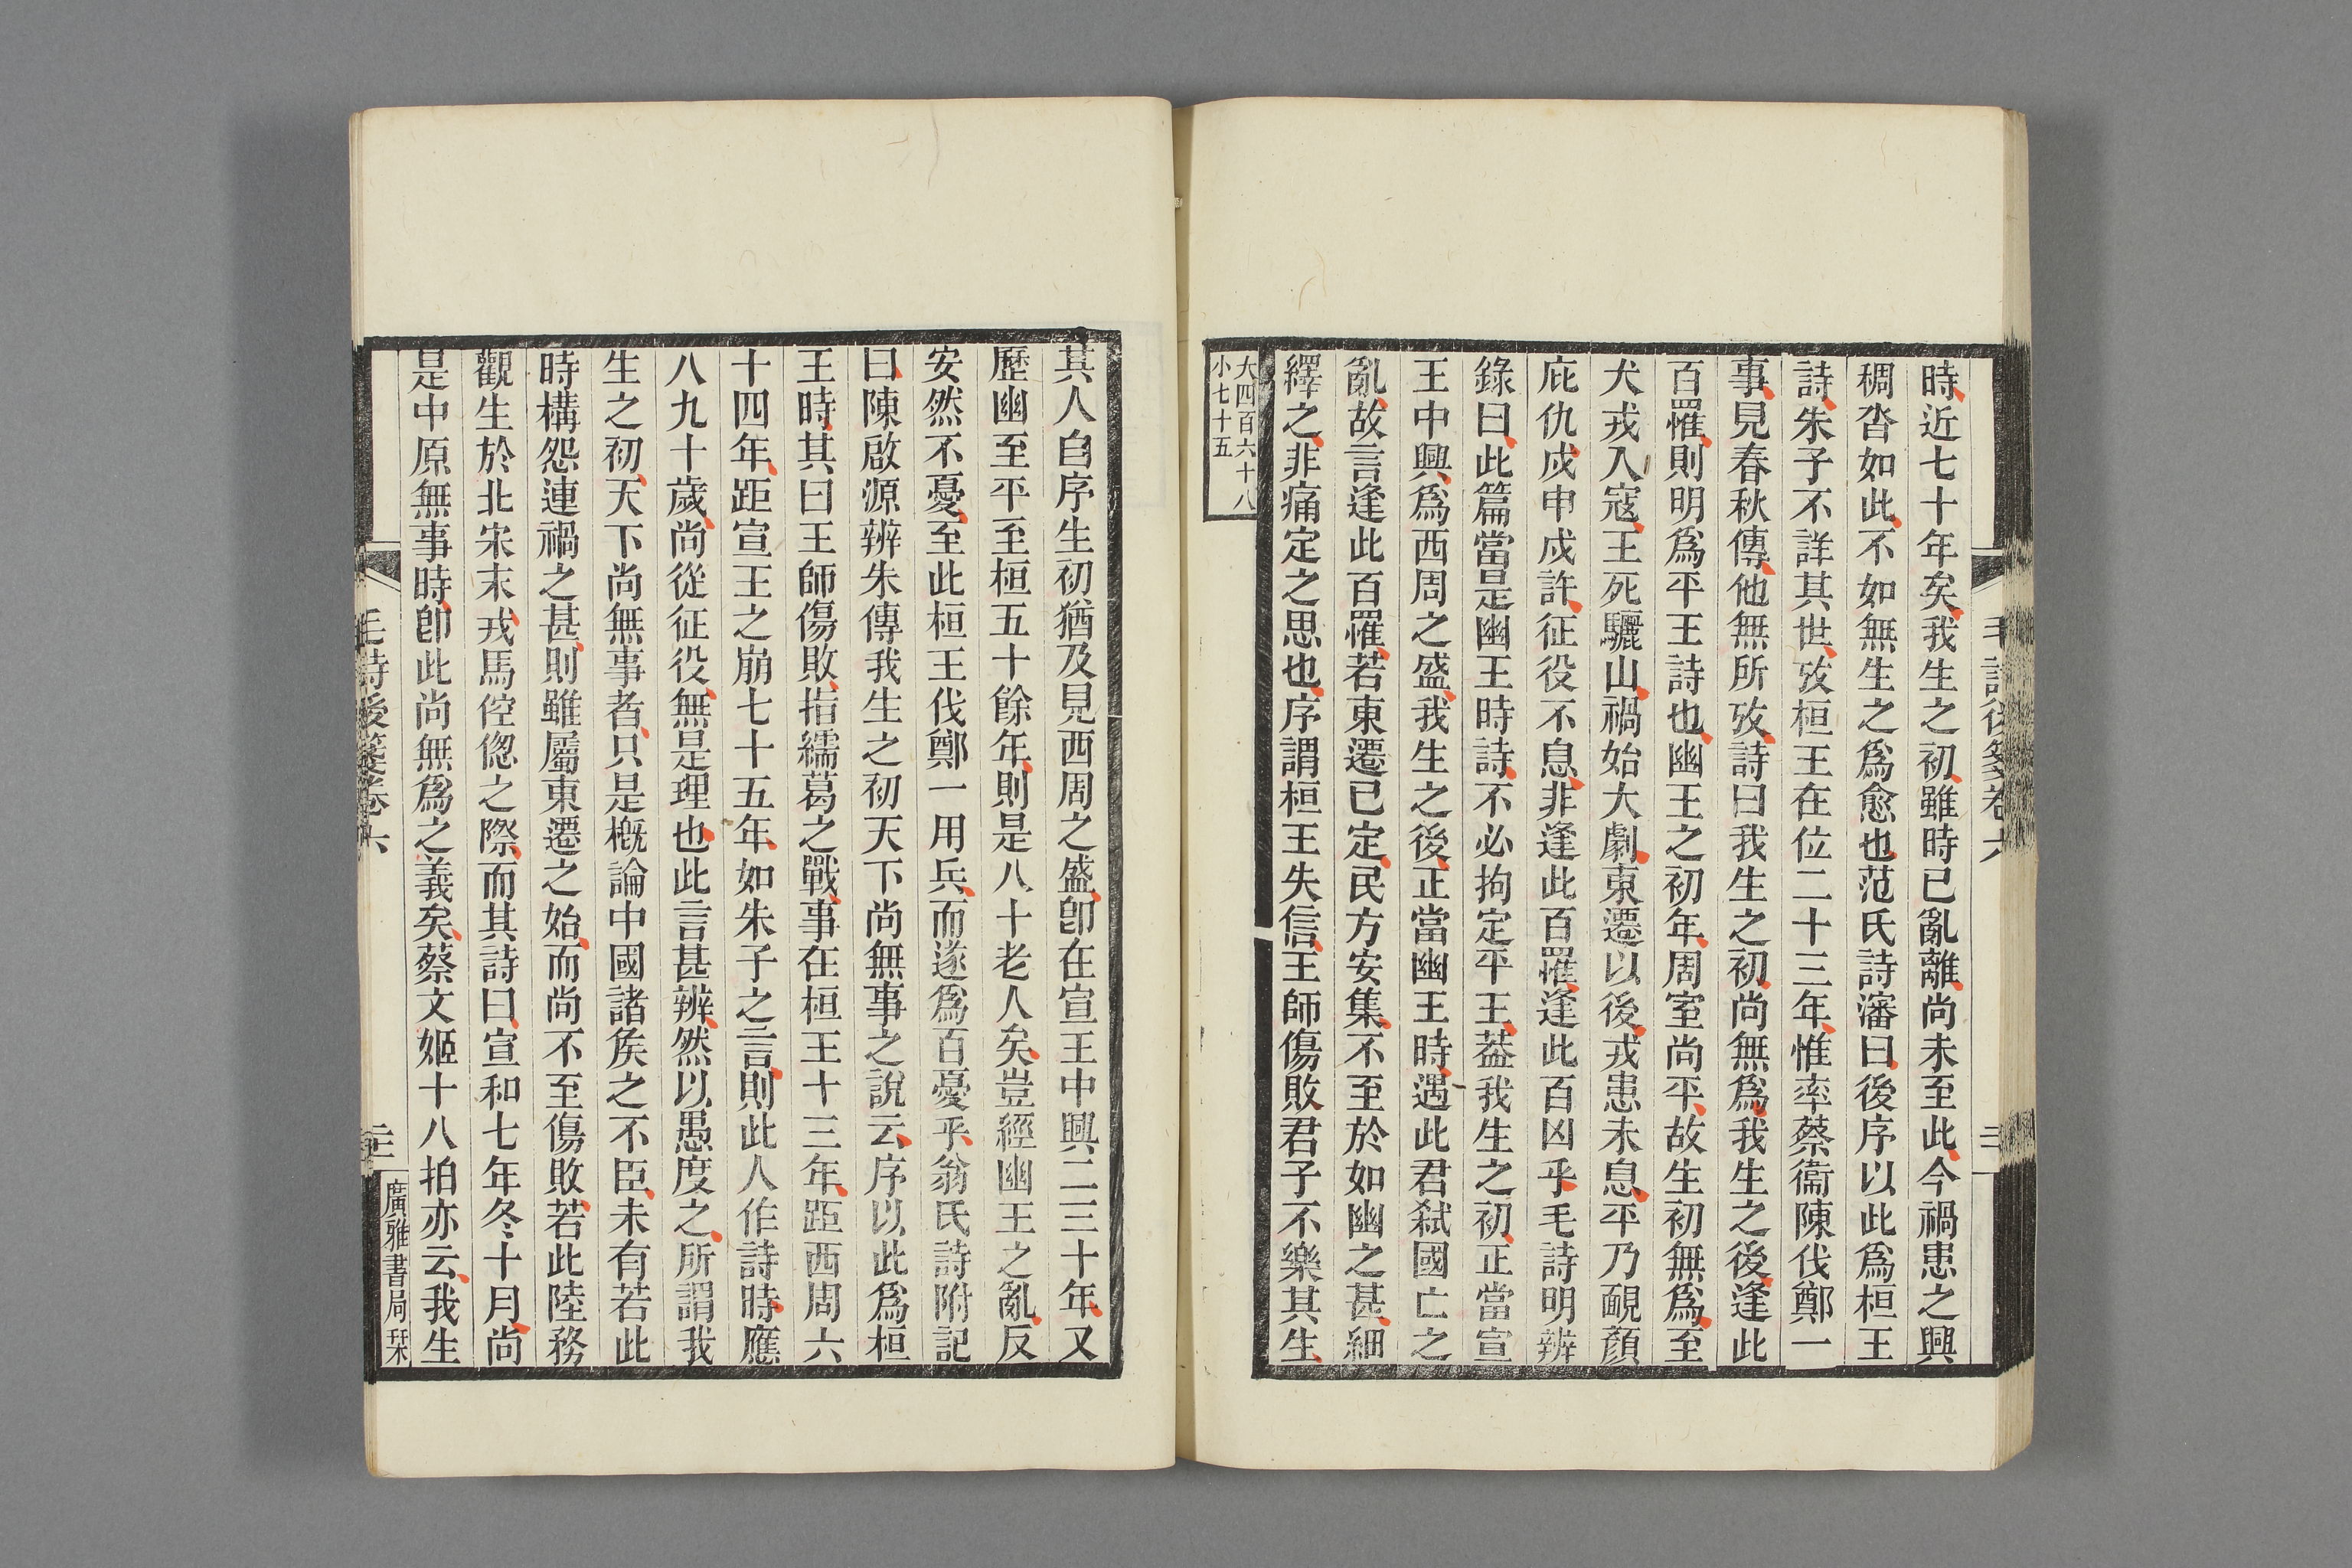 毛詩後箋卷六
時近七十年矣我生之初雖時已亂離尚未至此今禍患之興
稠沓如此不如無生之爲愈也范氏詩瀋曰後序以此爲桓王
詩朱子不詳其世攷桓王在位二十三年惟率蔡衞陳伐鄭一
事見春秋傳他無所攷詩曰我生之初尚無爲我生之後逢此
百罹則明爲平王詩也幽王之初年周室尚平故生初無爲至
犬戎入寇王死驪山禍始大劇東遷以後戎患未息平乃靦顏
庇仇戍申戍許征役不息非逢此百罹逢此百凶乎毛詩明辨
錄曰此篇當是幽王時詩不必拘定平王葢我生之初正當宣
王中興爲西周之盛我生之後正當幽王時遇此君弒國亡之
亂故言逢此百罹若東遷已定民方安集不至於如幽之甚細
繹之非痛定之思也序謂桓王失信王師傷敗君子不樂其生
大四百六十八
小七十五
其人自序生初猶及見西周之盛卽在宣王中興二三十年又
歷幽至平至桓五十餘年則是八十老人矣豈經幽王之亂反
安然不憂至此桓王伐鄭一用兵而遂爲百憂乎翁氏詩附記
曰陳啟源辨朱傳我生之初天下尚無事之說云序以此爲桓
王時其曰王師傷敗指繻葛之戰事在桓王十三年距西周六
十四年距宣王之崩七十五年如朱子之言則此人作詩時應
八九十歲尚從征役無是理也此言甚辨然以愚度之所謂我
生之初天下尚無事者只是槪論中國諸矦之不臣未有若此
時構怨連禍之甚則雖屬東遷之始而尚不至傷敗若此陸務
觀生於北宋末戎馬倥偬之際而其詩曰宣和七年冬十月尚
是中原無事時卽此尚無爲之義矣蔡文姬十八拍亦云我生
毛詩後箋卷六
廣雅書局栞